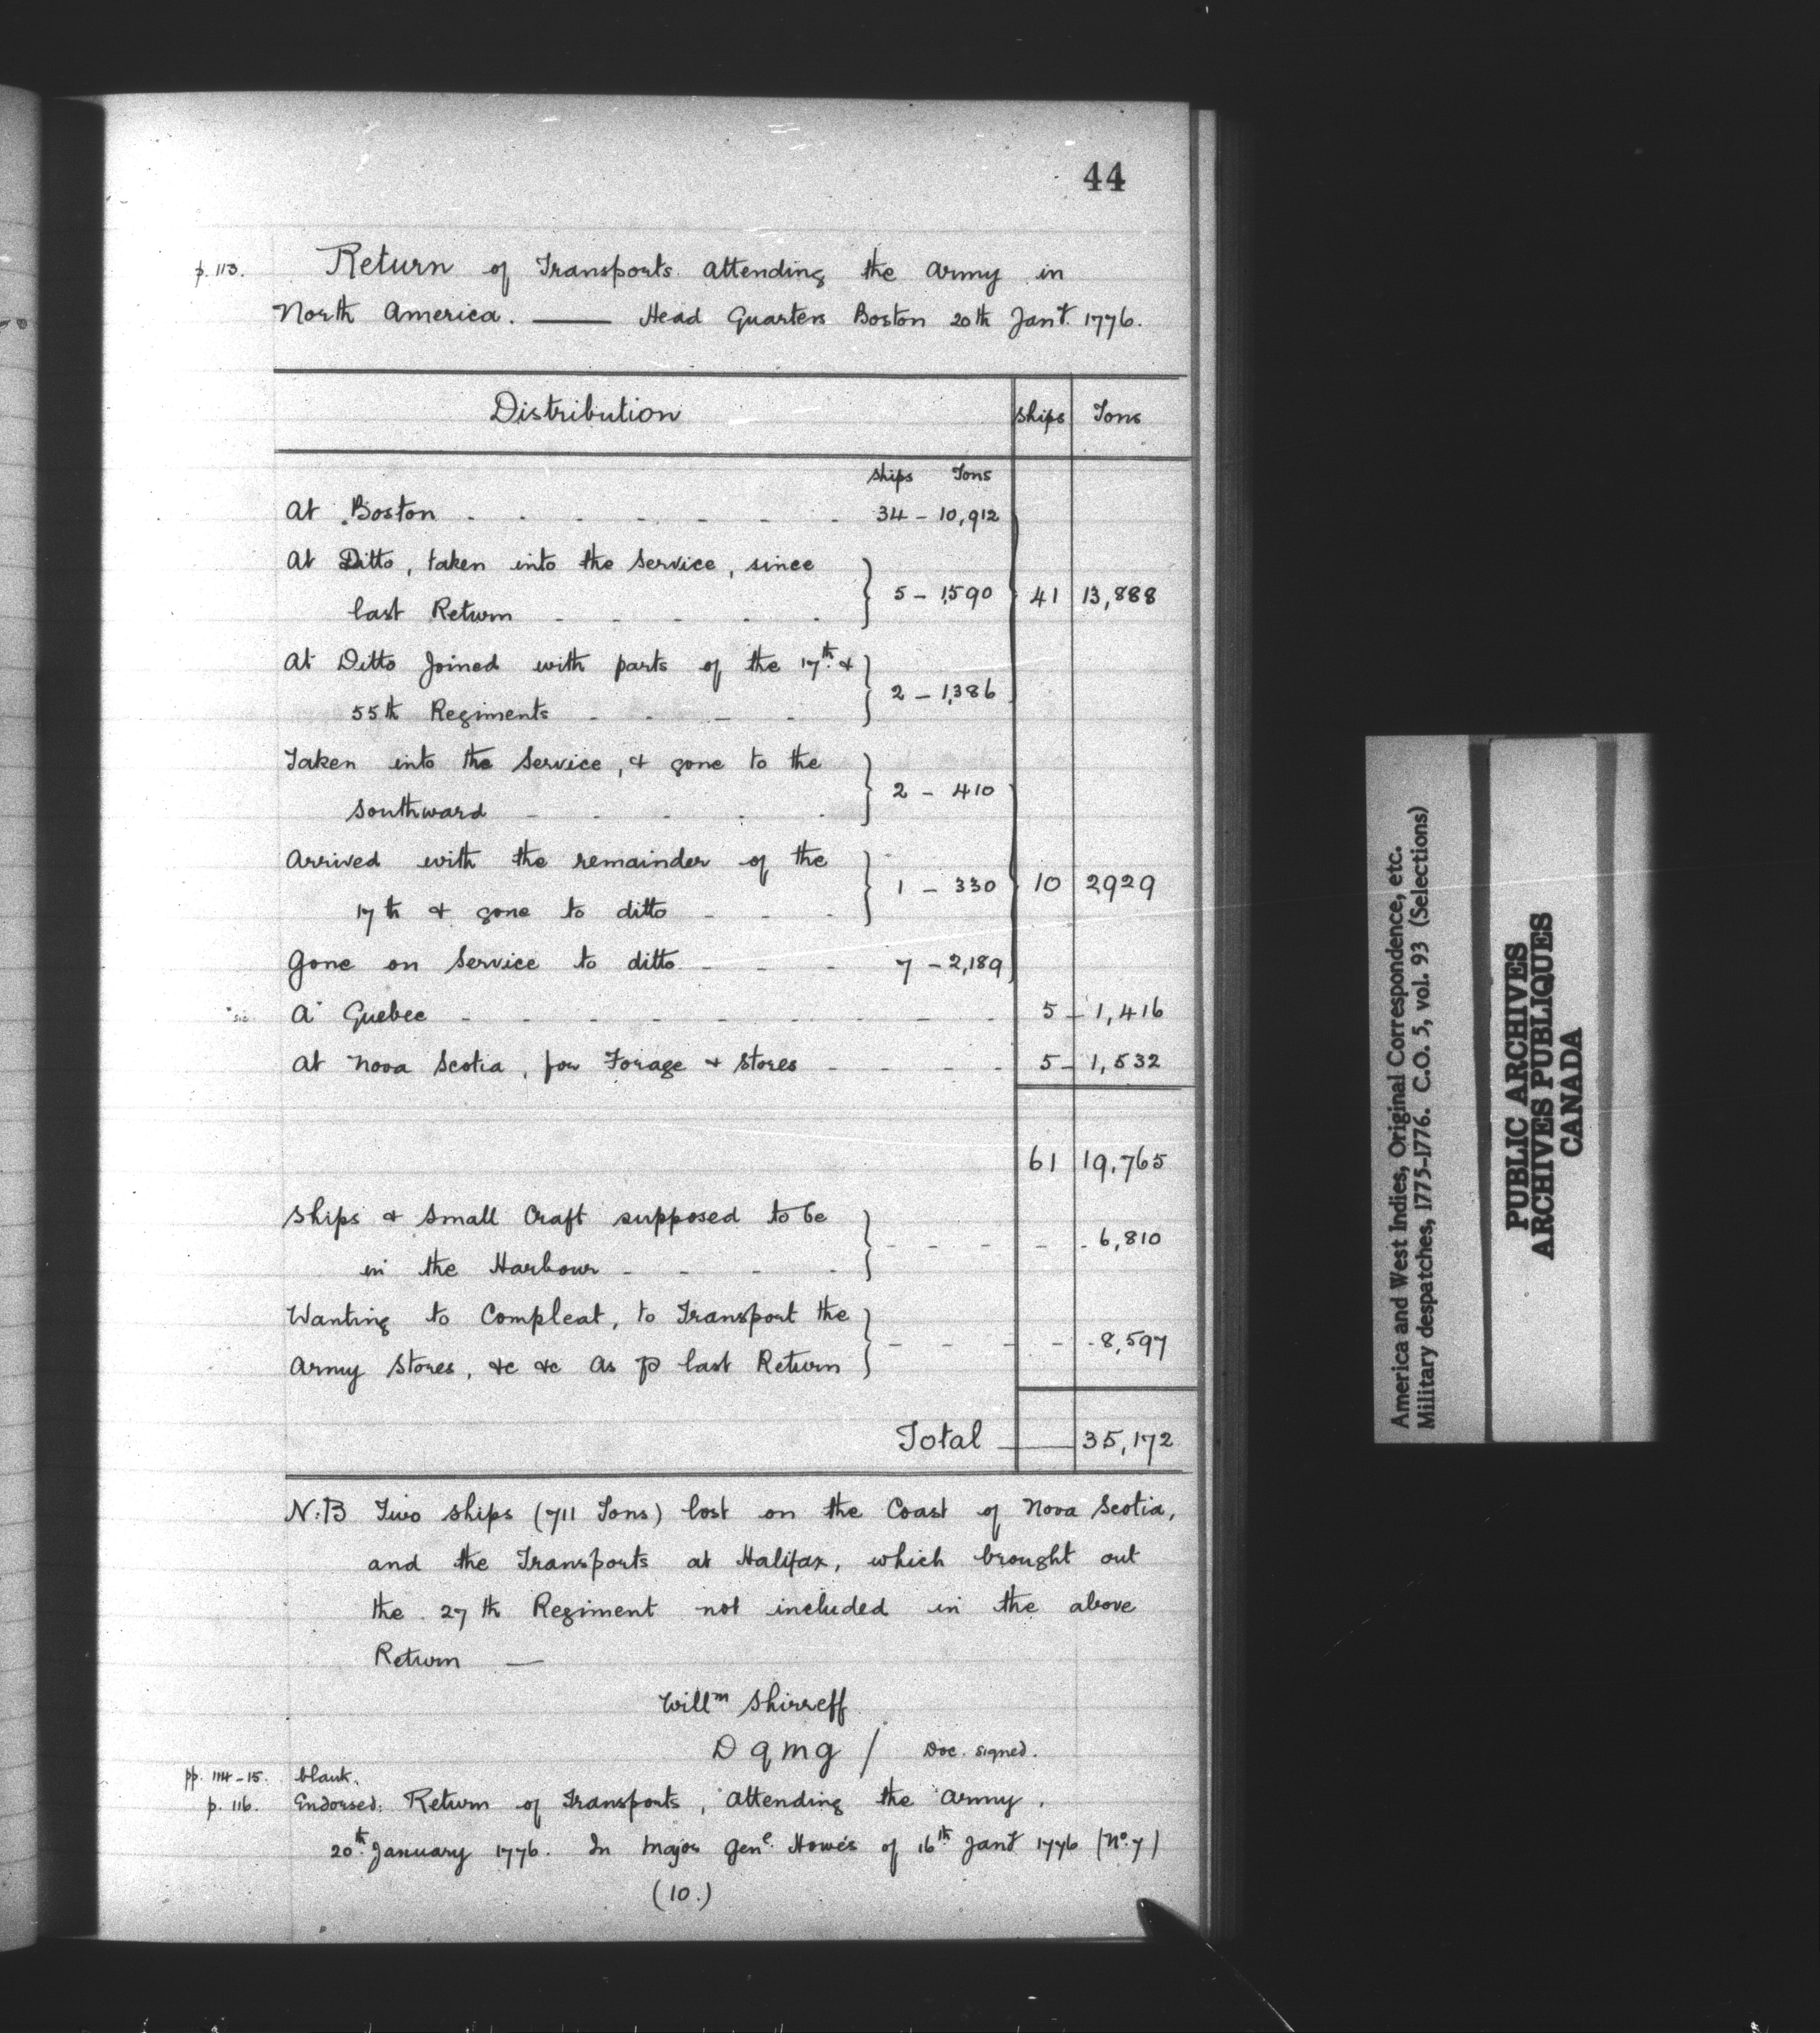 44
p. 113. Return of Transports attending the army in
North America. —— Head Quarters Boston 20th Jany. 1776.
Distribution Ships Tons
Ships Tons
At Boston - - - - - - - 34 - 10,912
At Ditto, taken into the Service, since
last Return - - - - - } 5 - 1,590 } 41 13,888
At Ditto Joined with parts of the 17th. &
55th Regiments - - - - } 2 - 1,386
Taken into the Service, & gone to the
Southward - - - - - } 2 - 410
Arrived with the remainder of the
17th & gone to ditto - - - } 1 - 330 } 10 2929
Gone on Service to ditto - - - 7 - 2,189
"sic. A" Quebec - - - - - - - - - 5 - 1,416
At Nova Scotia, for Forage & Stores - - - - 5 - 1,532
61 19,765
Ships & Small Craft supposed to be
in the Harbour - - - - } - - - - - 6,810
Wanting to Compleat, to Transport the
Army Stores, &c &c As p last Return } - - - - - 8,597
Total —— 35,172
N.B Two Ships (711 Tons) lost on the Coast of Nova Scotia,
and the Transports at Halifax, which brought out
the 27th Regiment not included in the above
Return —
Willm Shirreff
D q m g / Doc. signed.
pp. 114-15. blank.
p. 116. Endorsed: Return of Transports, attending the Army.
20th. January 1776. In Major Genl. Howe's of 16th Jany 1776 (No. 7)
(10.)
America and West Indies, Original Correspondence, etc.
Military despatches, 1775-1776. C.O. 5, vol. 93 (Selections)
PUBLIC ARCHIVES
ARCHIVES PUBLIQUES
CANADA